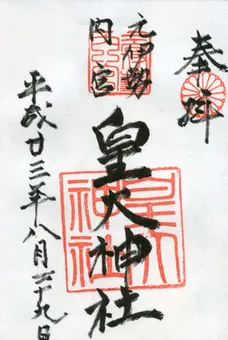 奉拝
元伊勢
内宮
皇大神社
平成廿三年八月二十九日